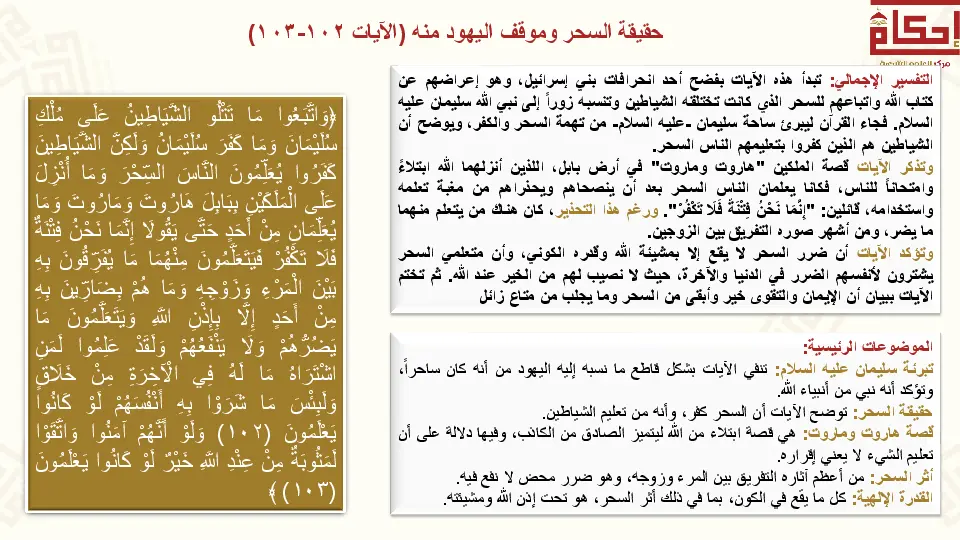 إحكام
مركز العلوم الشرعية
حقيقة السحر وموقف اليهود منه (الآيات ١٠٢-١٠٣)
التفسير الإجمالي: تبدأ هذه الآيات بفضح أحد انحرافات بني إسرائيل، وهو إعراضهم عن
كتاب الله واتباعهم للسحر الذي كانت تختلقه الشياطين وتنسبه زوراً إلى نبي الله سليمان عليه
السلام. فجاء القرآن ليبرئ ساحة سليمان -عليه السلام- من تهمة السحر والكفر، ويوضح أن
الشياطين هم الذين كفروا بتعليمهم الناس السحر.
وتذكر الآيات قصة الملكين "هاروت وماروت" في أرض بابل، اللذين أنزلهما الله ابتلاءً
وامتحاناً للناس، فكانا يعلمان الناس السحر بعد أن ينصحاهم ويحذراهم من مغبة تعلمه
واستخدامه، قائلين: "إِنَّمَا نَحْنُ فِتْنَةٌ فَلَا تَكْفُرْ". ورغم هذا التحذير، كان هناك من يتعلم منهما
ما يضر، ومن أشهر صوره التفريق بين الزوجين.
وتؤكد الآيات أن ضرر السحر لا يقع إلا بمشيئة الله وقدره الكوني، وأن متعلمي السحر
يشترون لأنفسهم الضرر في الدنيا والآخرة، حيث لا نصيب لهم من الخير عند الله. ثم تختم
الآيات ببيان أن الإيمان والتقوى خير وأبقى من السحر وما يجلب من متاع زائل
الموضوعات الرئيسية:
تبرئة سليمان عليه السلام: تنفي الآيات بشكل قاطع ما نسبه إليه اليهود من أنه كان ساحراً،
وتؤكد أنه نبي من أنبياء الله.
حقيقة السحر: توضح الآيات أن السحر كفر، وأنه من تعليم الشياطين.
قصة هاروت وماروت: هي قصة ابتلاء من الله ليتميز الصادق من الكاذب، وفيها دلالة على أن
تعليم الشيء لا يعني إقراره.
أثر السحر: من أعظم آثاره التفريق بين المرء وزوجه، وهو ضرر محض لا نفع فيه.
القدرة الإلهية: كل ما يقع في الكون، بما في ذلك أثر السحر، هو تحت إذن الله ومشيئته.
﴿وَاتَّبَعُوا مَا تَتْلُو الشَّيَاطِينُ عَلَى مُلْكِ
سُلَيْمَانَ وَمَا كَفَرَ سُلَيْمَانُ وَلَكِنَّ الشَّيَاطِينَ
كَفَرُوا يُعَلِّمُونَ النَّاسَ السِّحْرَ وَمَا أُنْزِلَ
عَلَى الْمَلَكَيْنِ بِبَابِلَ هَارُوتَ وَمَارُوتَ وَمَا
يُعَلِّمَانِ مِنْ أَحَدٍ حَتَّى يَقُولَا إِنَّمَا نَحْنُ فِتْنَةٌ
فَلَا تَكْفُرْ فَيَتَعَلَّمُونَ مِنْهُمَا مَا يُفَرِّقُونَ بِهِ
بَيْنَ الْمَرْءِ وَزَوْجِهِ وَمَا هُمْ بِضَارِّينَ بِهِ
مِنْ أَحَدٍ إِلَّا بِإِذْنِ اللَّهِ وَيَتَعَلَّمُونَ مَا
يَضُرُّهُمْ وَلَا يَنْفَعُهُمْ وَلَقَدْ عَلِمُوا لَمَنِ
اشْتَرَاهُ مَا لَهُ فِي الْآخِرَةِ مِنْ خَلَاقٍ
وَلَبِئْسَ مَا شَرَوْا بِهِ أَنْفُسَهُمْ لَوْ كَانُوا
يَعْلَمُونَ (١٠٢) وَلَوْ أَنَّهُمْ آمَنُوا وَاتَّقَوْا
لَمَثُوبَةٌ مِنْ عِنْدِ اللَّهِ خَيْرٌ لَوْ كَانُوا يَعْلَمُونَ
(١٠٣) ﴾